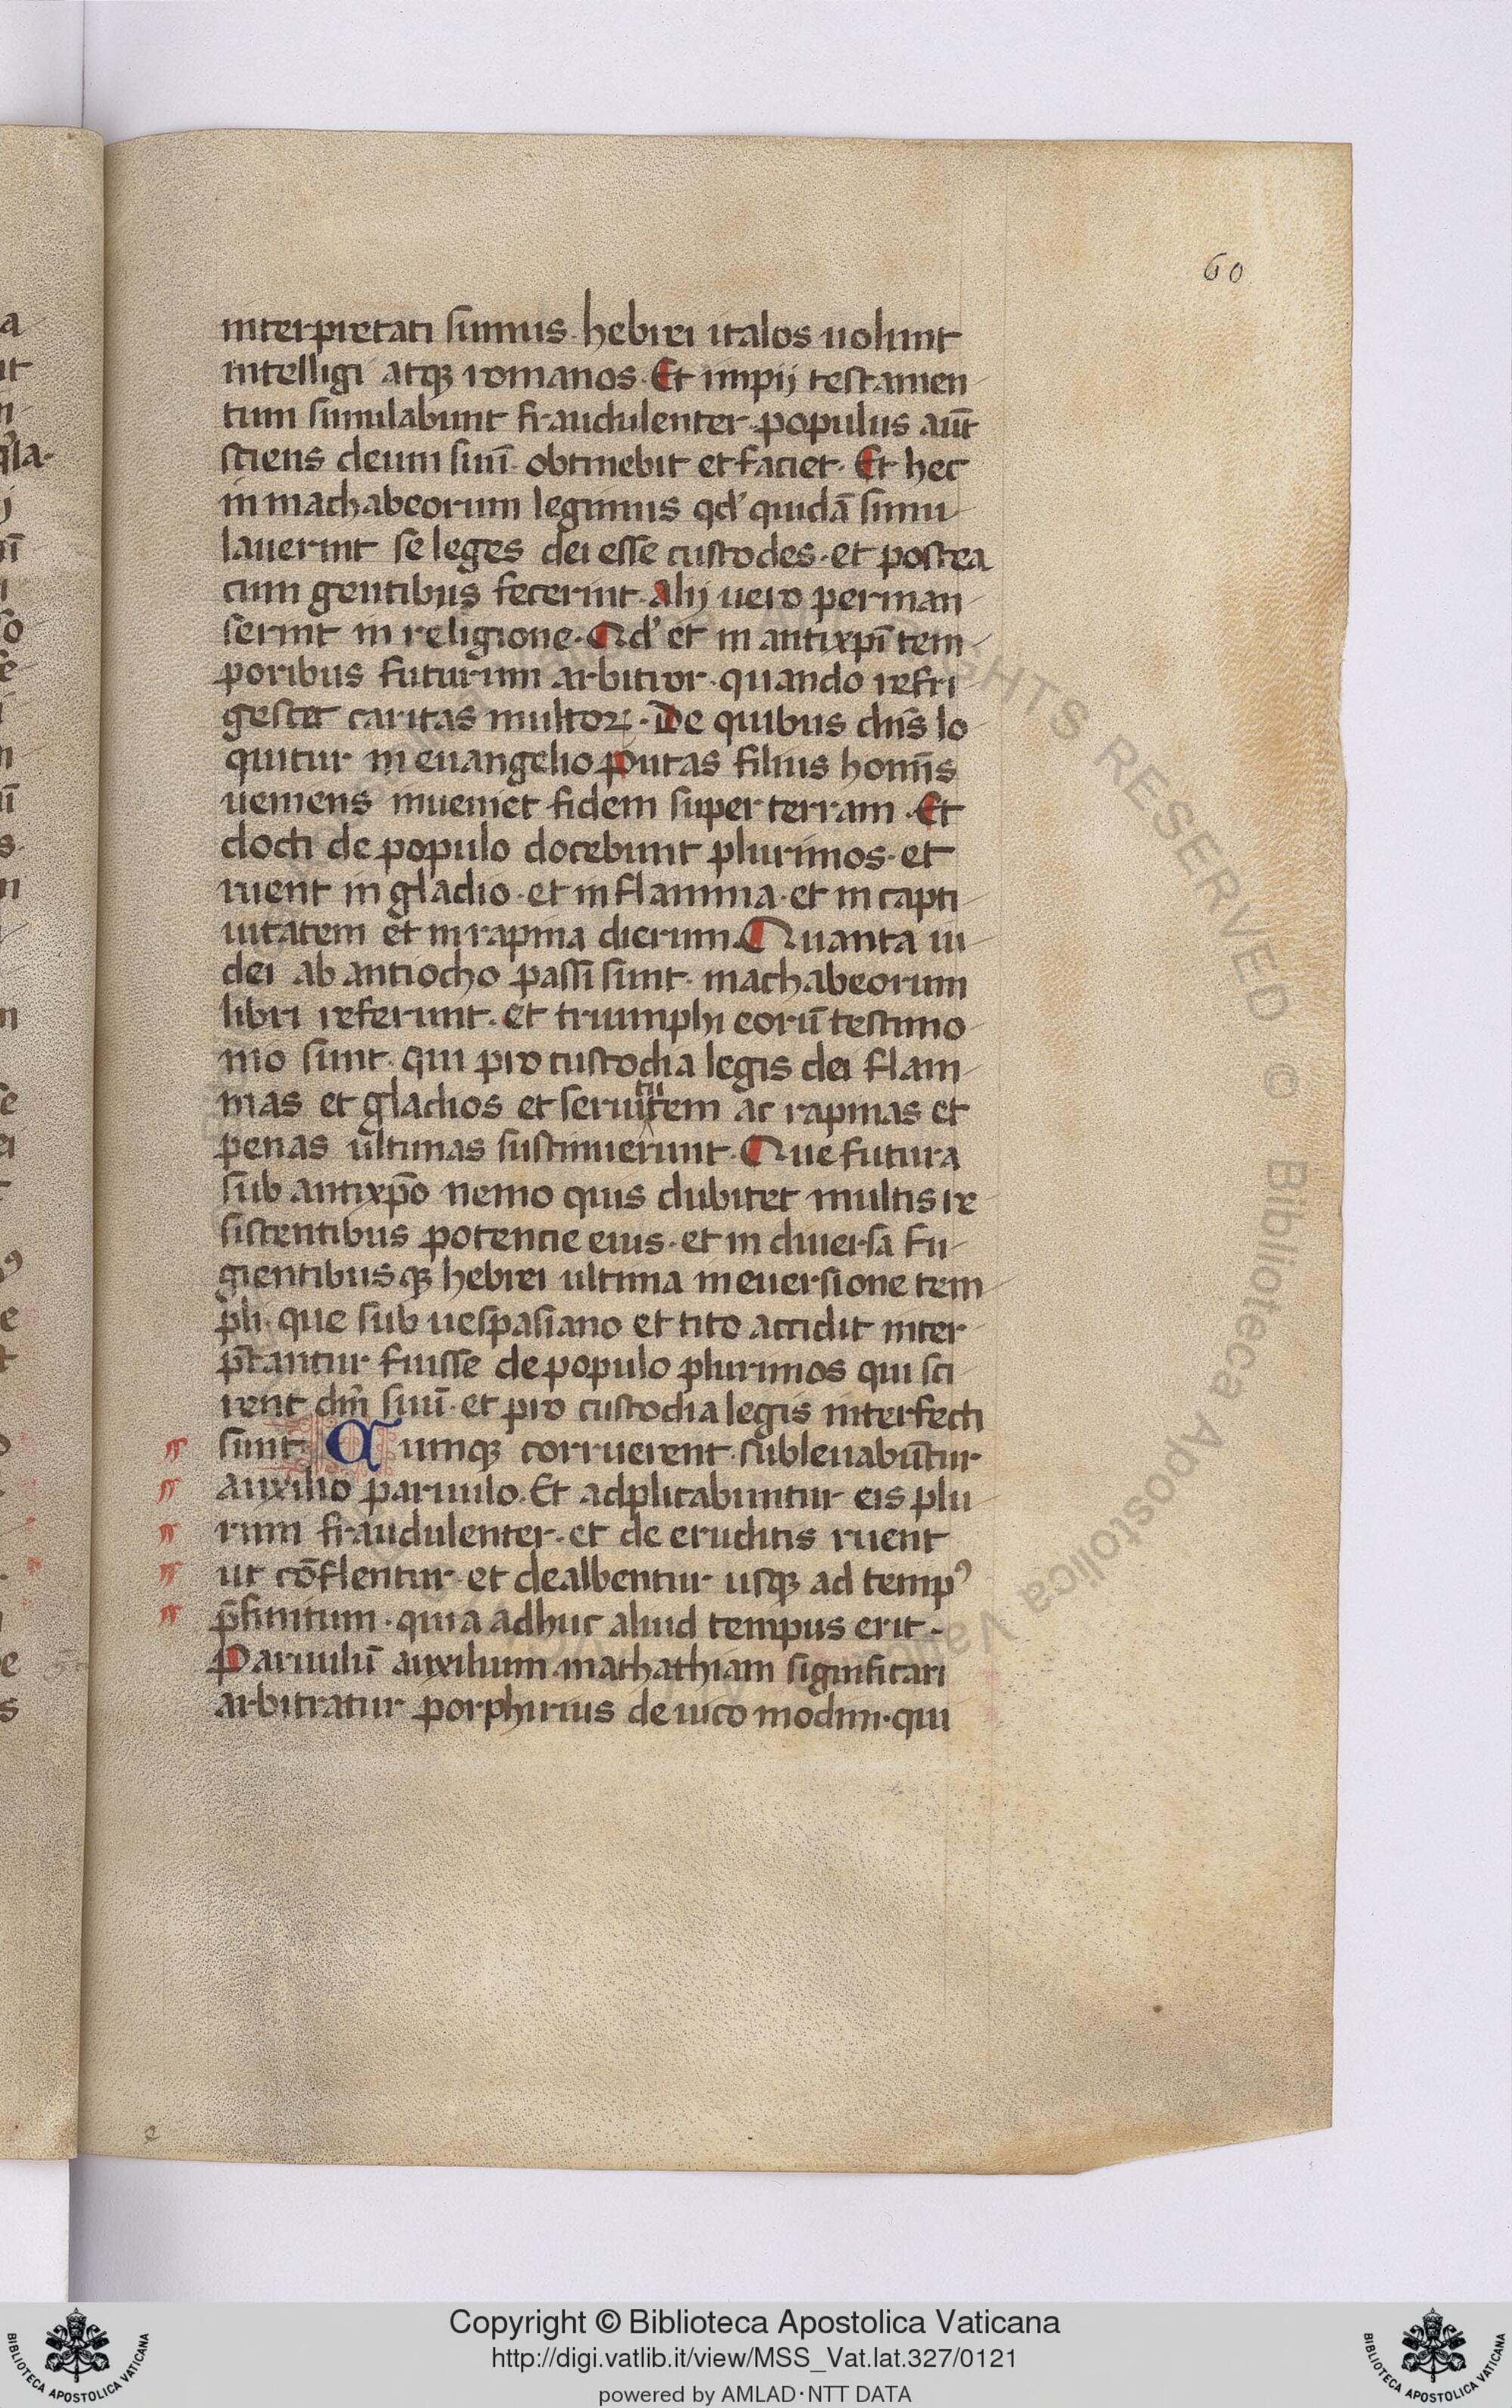 60
interpretati sumus. hebrei italos uolunt
intelligi atqꝫ romanos. Et impij testamen
tum simulabunt fraudulenter. populus aut̄
sciens deum suū. obtinebit et faciet. Et hec
in machabeorum legimus qd' quidā simu
lauerint se leges dei esse custodes. et postea
cum gentibus fecerint. alij uero perman
serint in religione. Qd' et in antixpī tem
poribus futurum arbitror. quando refri
gescet caritas multoꝝ. De quibus dn̄s lo
quitur in euangelio putas filius homīs
ueniens inueniet fidem super terram. Et
docti de populo docebunt plurimos. et
ruent in gladio. et in flamma. et in capti
uitatem et in rapina dierum. Quanta iu
dei ab antiocho passi sunt. machabeorum
libri referunt. et triumphi eorū testimo
nio sunt. qui pro custodia legis dei flam
mas et gladios et seruitutem ac rapinas et
penas ultimas sustinuerunt. Que futura
sub antixpō nemo quis dubitet multis re
sistentibus potentie eius. et in diuersa fu
gientibusqꝫ hebrei ultima in euersione tem
pli. que sub uespasiano et tito accidit inter
p̄tantur fuisse de populo plurimos qui sci
rent dm̄ suū. et pro custodia legis interfecti
sunt. Cumqꝫ corruerent. subleuabūtur
auxilio paruulo. Et adplicabuntur eis plu
rimi fraudulenter. et de eruditis ruent
ut cōflentur et dealbentur usqꝫ ad tempꝰ
p̄finitum. quia adhuc aliud tempus erit.
Paruulū auxilium mathathiam significari
arbitratur porphirius de uico modin. qui
Copyright © Biblioteca Apostolica Vaticana
http://digi.vatlib.it/view/MSS_Vat.lat.327/0121
powered by AMLAD·NTT DATA